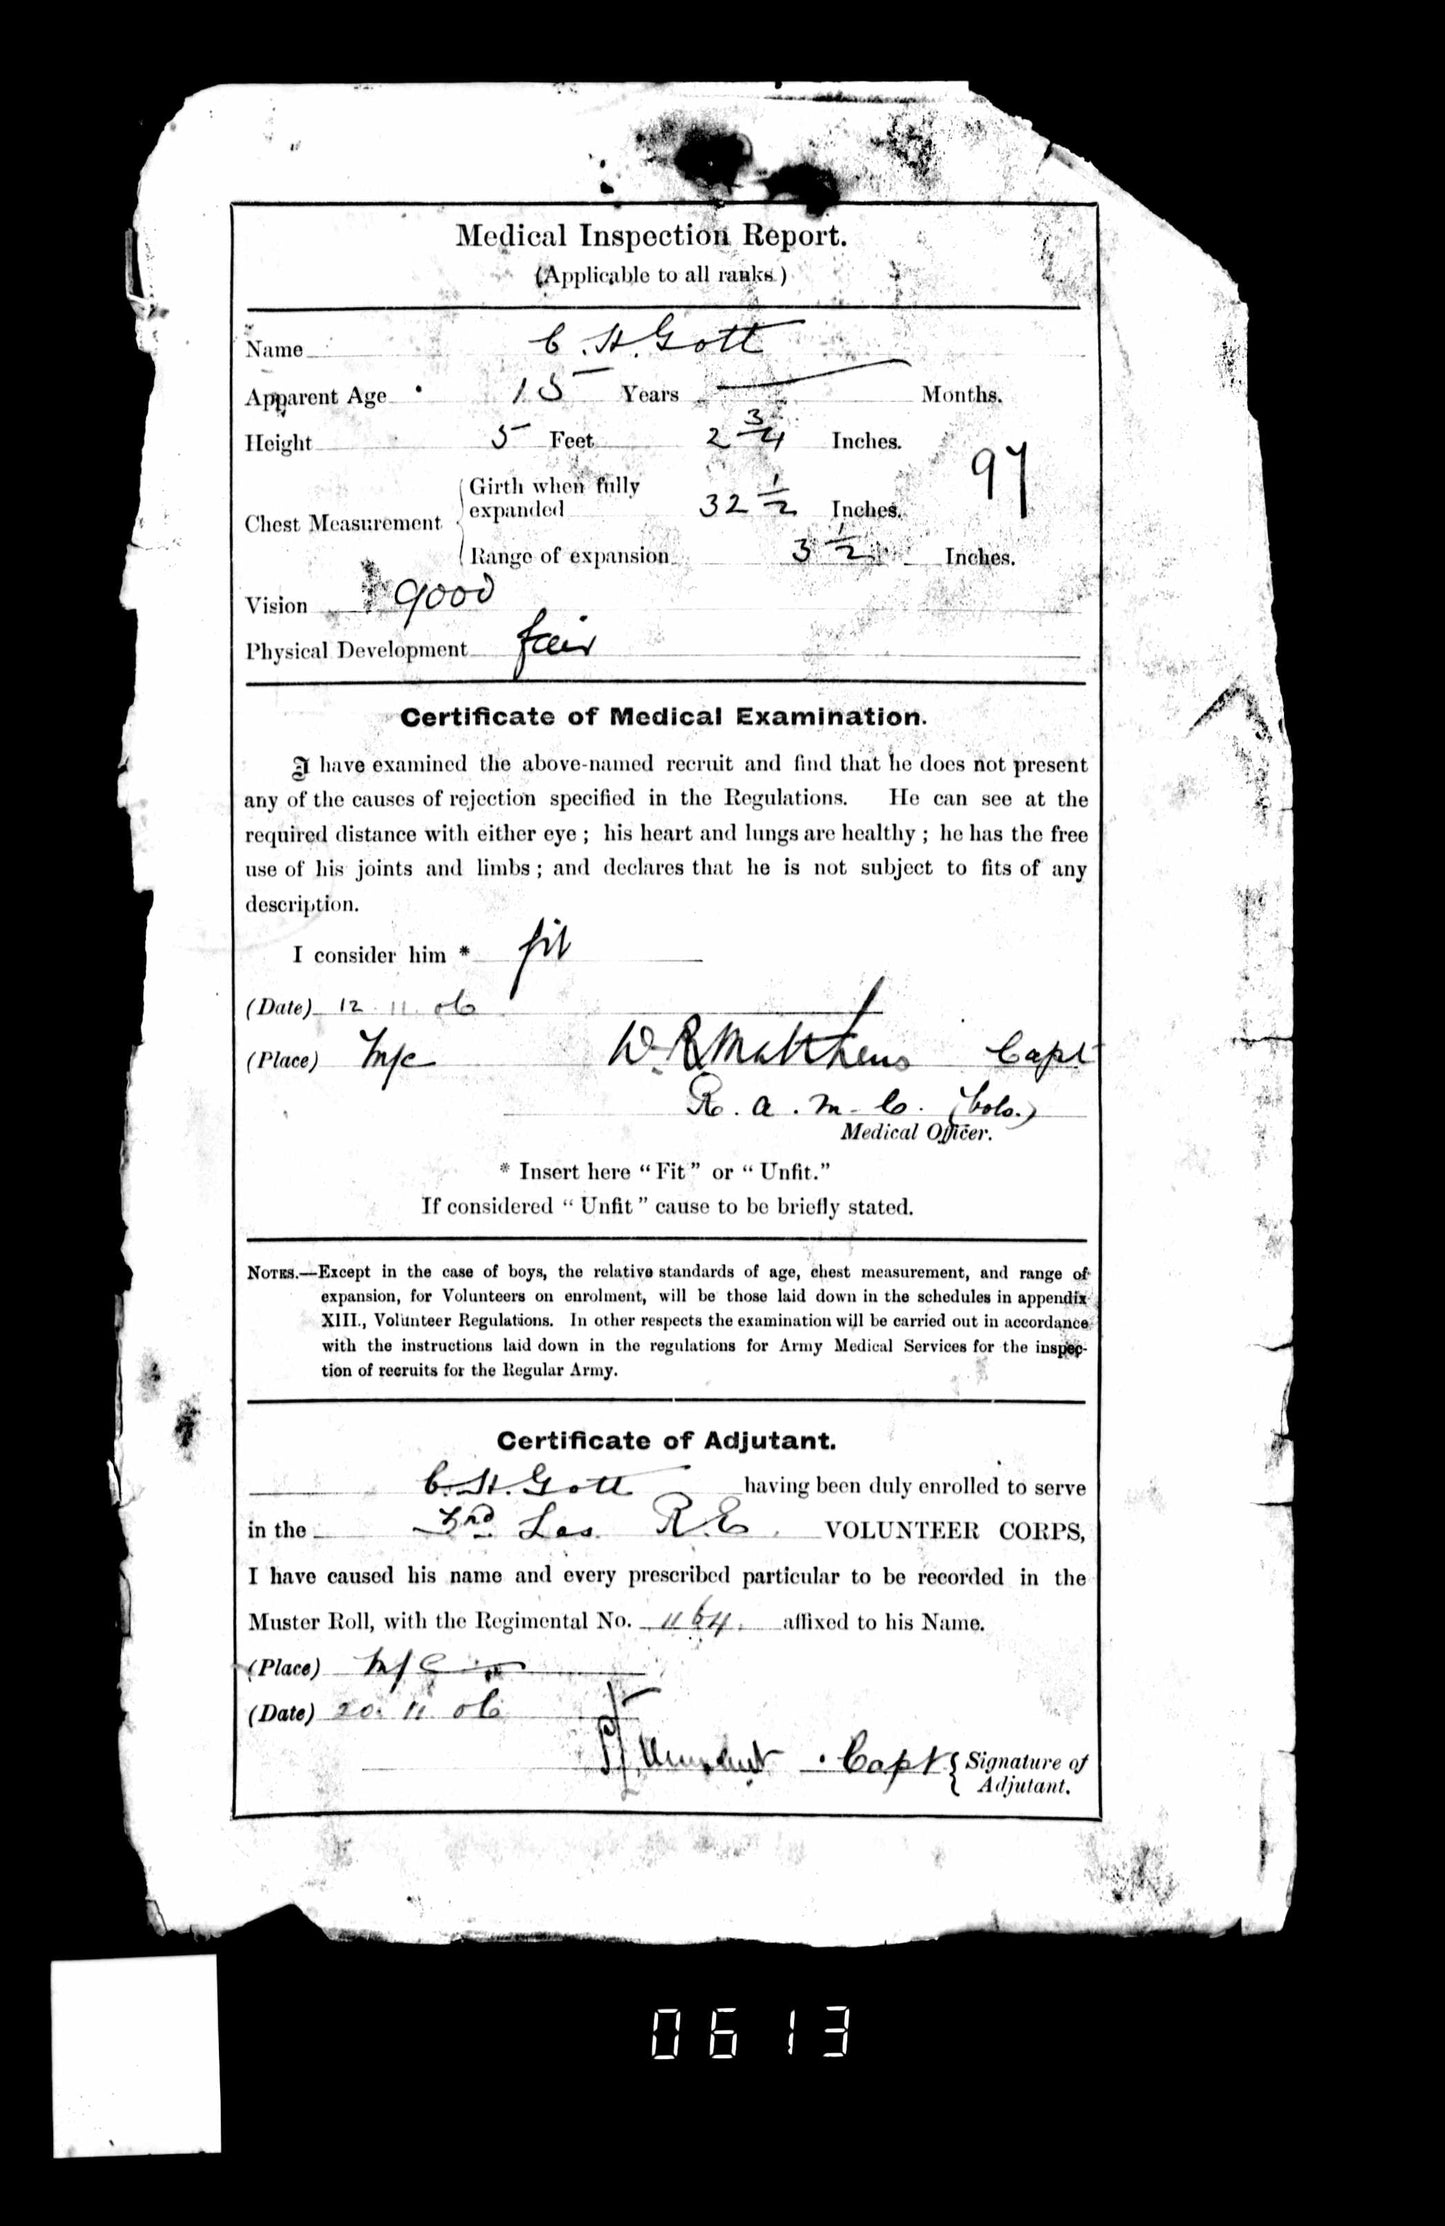 Medical Inspection Report.
(Applicable to all ranks.)
Name C. H. Gott
Apparent Age 15 Years — Months.
Height 5 Feet 2 3/4 Inches.
97
Chest Measurement { Girth when fully expanded 32 1/2 Inches.
Range of expansion 3 1/2 Inches.
Vision good
Physical Development fair
Certificate of Medical Examination.
I have examined the above-named recruit and find that he does not present
any of the causes of rejection specified in the Regulations. He can see at the
required distance with either eye ; his heart and lungs are healthy ; he has the free
use of his joints and limbs ; and declares that he is not subject to fits of any
description.
I consider him * fit
(Date) 12 . 11 . 06
(Place) M/c W. R. Matthews Capt
R. A. M. C. (Vols.)
Medical Officer.
* Insert here “ Fit ” or “ Unfit.”
If considered “ Unfit ” cause to be briefly stated.
NOTES.—Except in the case of boys, the relative standards of age, chest measurement, and range of
expansion, for Volunteers on enrolment, will be those laid down in the schedules in appendix
XIII., Volunteer Regulations. In other respects the examination will be carried out in accordance
with the instructions laid down in the regulations for Army Medical Services for the inspec-
tion of recruits for the Regular Army.
Certificate of Adjutant.
C. H. Gott having been duly enrolled to serve
in the 3rd Las. R.E. VOLUNTEER CORPS,
I have caused his name and every prescribed particular to be recorded in the
Muster Roll, with the Regimental No. 1164. affixed to his Name.
(Place) M/c
(Date) 20. 11. 06
Capt { Signature of
Adjutant.
0613